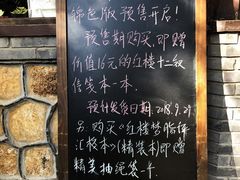 锦色版预售开启！
预售期购买，即赠
价值16元的红楼十二钗
信笺本一本.
预计发货日期:2018.9.29
另:购买《红楼梦脂评
汇校本》(精装本)即赠
精美抽绳袋一个